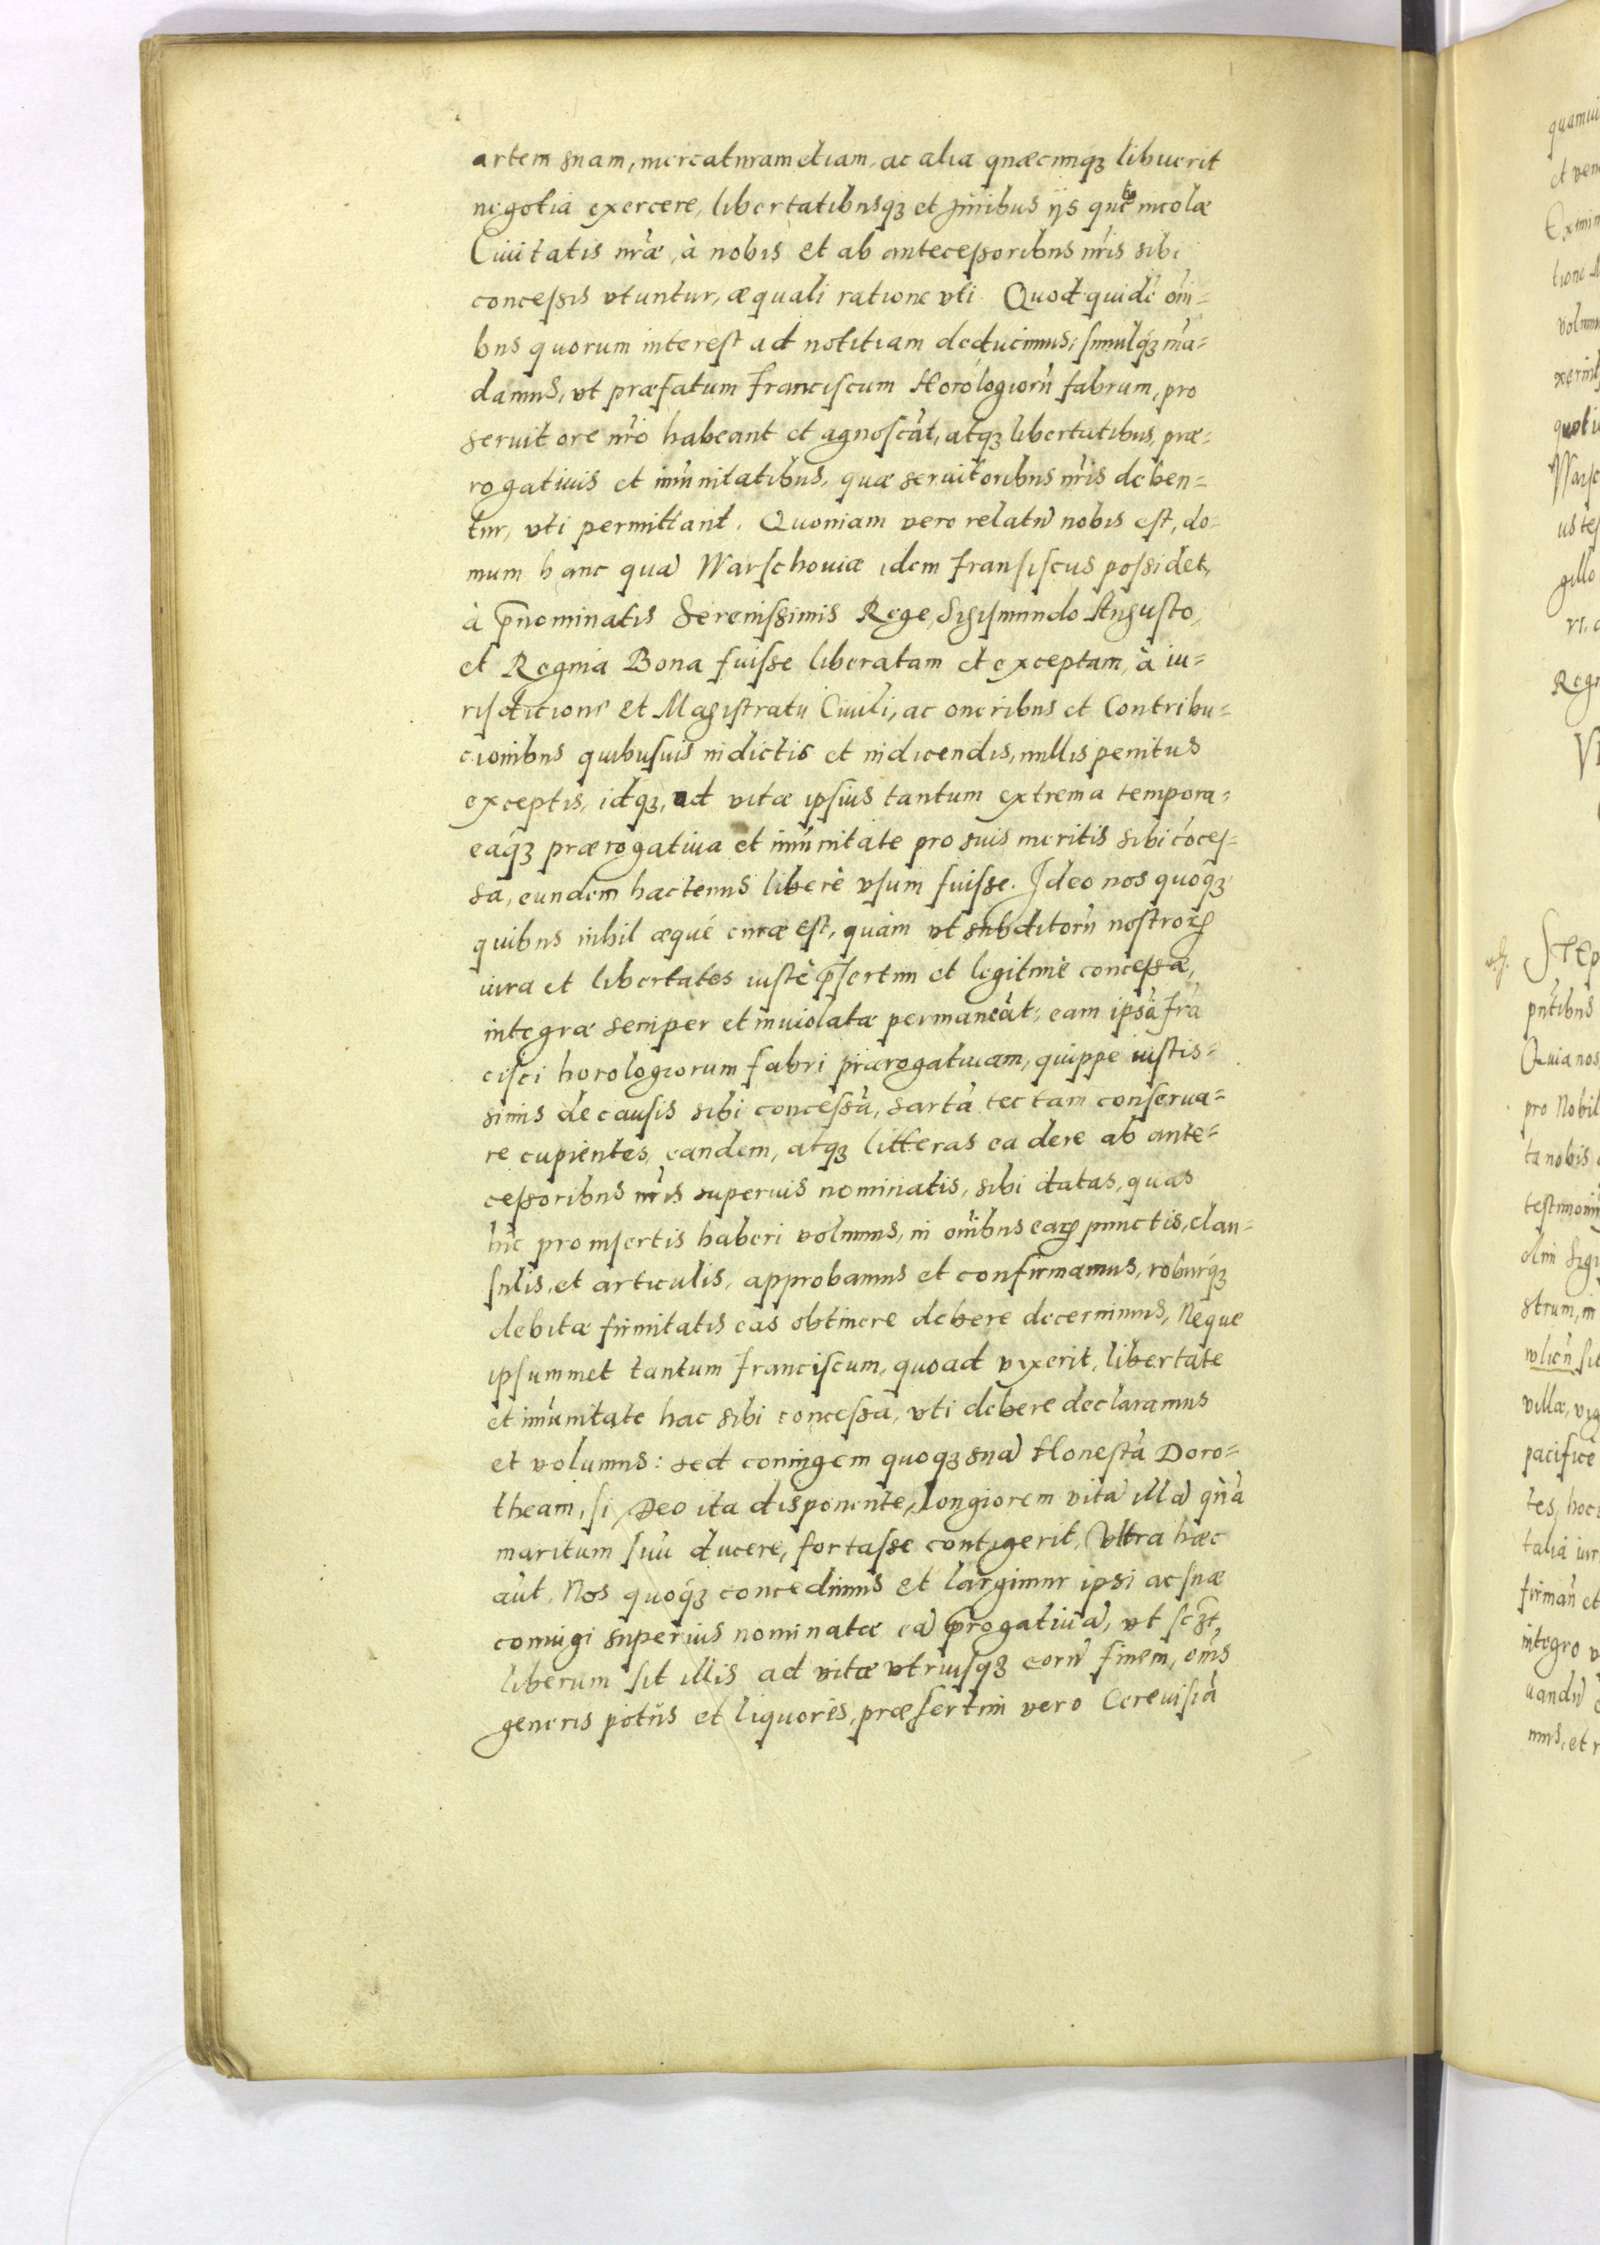 artem suam, mercaturam etiam, ac alia quæcunqꝫ libuerit
negotia exercere, libertatibusqꝫ et iuribus ijs quibus incolæ
Ciuitatis nr̄æ, à nobis et ab antecessoribus nr̄is sibi
concessis vtuntur, æquali ratione vti. Quod quidē om̄i=
bus quorum interest ad notitiam deducimus, simulqꝫ mā=
damus, vt præfatum Franciscum Horologiorū fabrum, pro
seruitore nr̄o habeant et agnoscāt, atqꝫ libertatibus, præ=
rogatiuis et im̄unitatibus, quæ seruitoribus nr̄is deben=
tur, vti permittant. Quoniam vero relatū nobis est, do=
mum hanc quā Warschouiæ idem Fransiscus possidet,
à p̄nominatis Serenissimis Rege, Sigismundo Augusto,
et Regina Bona fuisse liberatam et exceptam, à iu=
risditione et Magistratu Ciuili, ac oneribus et Contribu=
cionibus quibusuis indictis et indicendis, nullis penitus
exceptis, idqꝫ, ad vitæ ipsius tantum extrema tempora,
eaqꝫ prærogatiua et im̄unitate pro suis meritis sibi cōces=
sa, eundem hactenus liberè vsum fuisse. Ideo nos quoqꝫ
quibus nihil æqué curæ est, quàm vt subditorū nostroꝝ
iura et libertates iustè p̄sertim et legitimè concessæ,
integræ semper et inuiolatæ permaneāt, eam ipsā Frā
cisci horologiorum fabri prærogatiuam, quippe iustis=
simis de causis sibi concessā, sartā tectam conserua=
re cupientes, eandem, atqꝫ litteras ea de re ab ante=
cessoribus nr̄is superius nominatis, sibi datas, quas
hīc pro insertis haberi volumus, in om̄ibus eaꝝ punctis, clau=
sulis, et articulis, approbamus et confirmamus, roburqꝫ
debitæ firmitatis eas obtinere debere decernimus, Neque
ipsummet tantum Franciscum, quoad vixerit, libertate
et im̄unitate hac sibi concessa, vti debere declaramus
et volumus: sed coniugem quoqꝫ suā Honestā Doro=
theam, si, Deo ita disponente, longiorem vitā illā quā
maritum suū ducere, fortasse contigerit, Vltra hæc
aūt, Nos quoqꝫ concedimus et largimur ipsi ac suæ
coniugi superius nominatæ eā p̄rogatiuā, vt scꝫt,
liberum sit illis ad vitæ vtriusqꝫ eorū finem, om̄is
generis potūs et liquoris, præsertim vero Cereuisiā